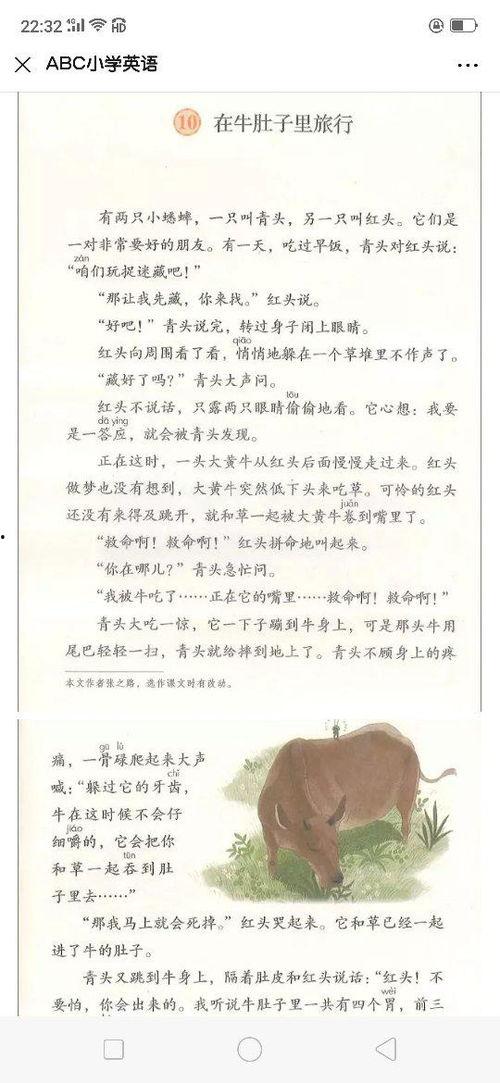 22:32 4G HD
ABC小学英语
10 在牛肚子里旅行
有两只小蟋蟀，一只叫青头，另一只叫红头。它们是
一对非常要好的朋友。有一天，吃过早饭，青头对红头说：
zán
“咱们玩捉迷藏吧！”
“那让我先藏，你来找。”红头说。
“好吧！”青头说完，转过身子闭上眼睛。
qiāo
红头向周围看了看，悄悄地躲在一个草堆里不作声了。
“藏好了吗？”青头大声问。
tōu
红头不说话，只露两只眼睛偷偷地看。它心想：我要
dā ying
是一答应，就会被青头发现。
正在这时，一头大黄牛从红头后面慢慢走过来。红头
做梦也没有想到，大黄牛突然低下头来吃草。可怜的红头
juǎn
还没有来得及跳开，就和草一起被大黄牛卷到嘴里了。
“救命啊！救命啊！”红头拼命地叫起来。
“你在哪儿？”青头急忙问。
“我被牛吃了……正在它的嘴里……救命啊！救命啊！”
青头大吃一惊，它一下子蹦到牛身上，可是那头牛用
尾巴轻轻一扫，青头就给摔到地上了。青头不顾身上的疼
本文作者张之路，选作课文时有改动。
gū lu
痛，一骨碌爬起来大声
chǐ
喊：“躲过它的牙齿，
牛在这时候不会仔
jiáo
细嚼的，它会把你
tūn
和草一起吞到肚
子里去……”
“那我马上就会死掉。”红头哭起来。它和草已经一起
进了牛的肚子。
青头又跳到牛身上，隔着肚皮和红头说话：“红头！不
wèi
要怕，你会出来的。我听说牛肚子里一共有四个胃，前三